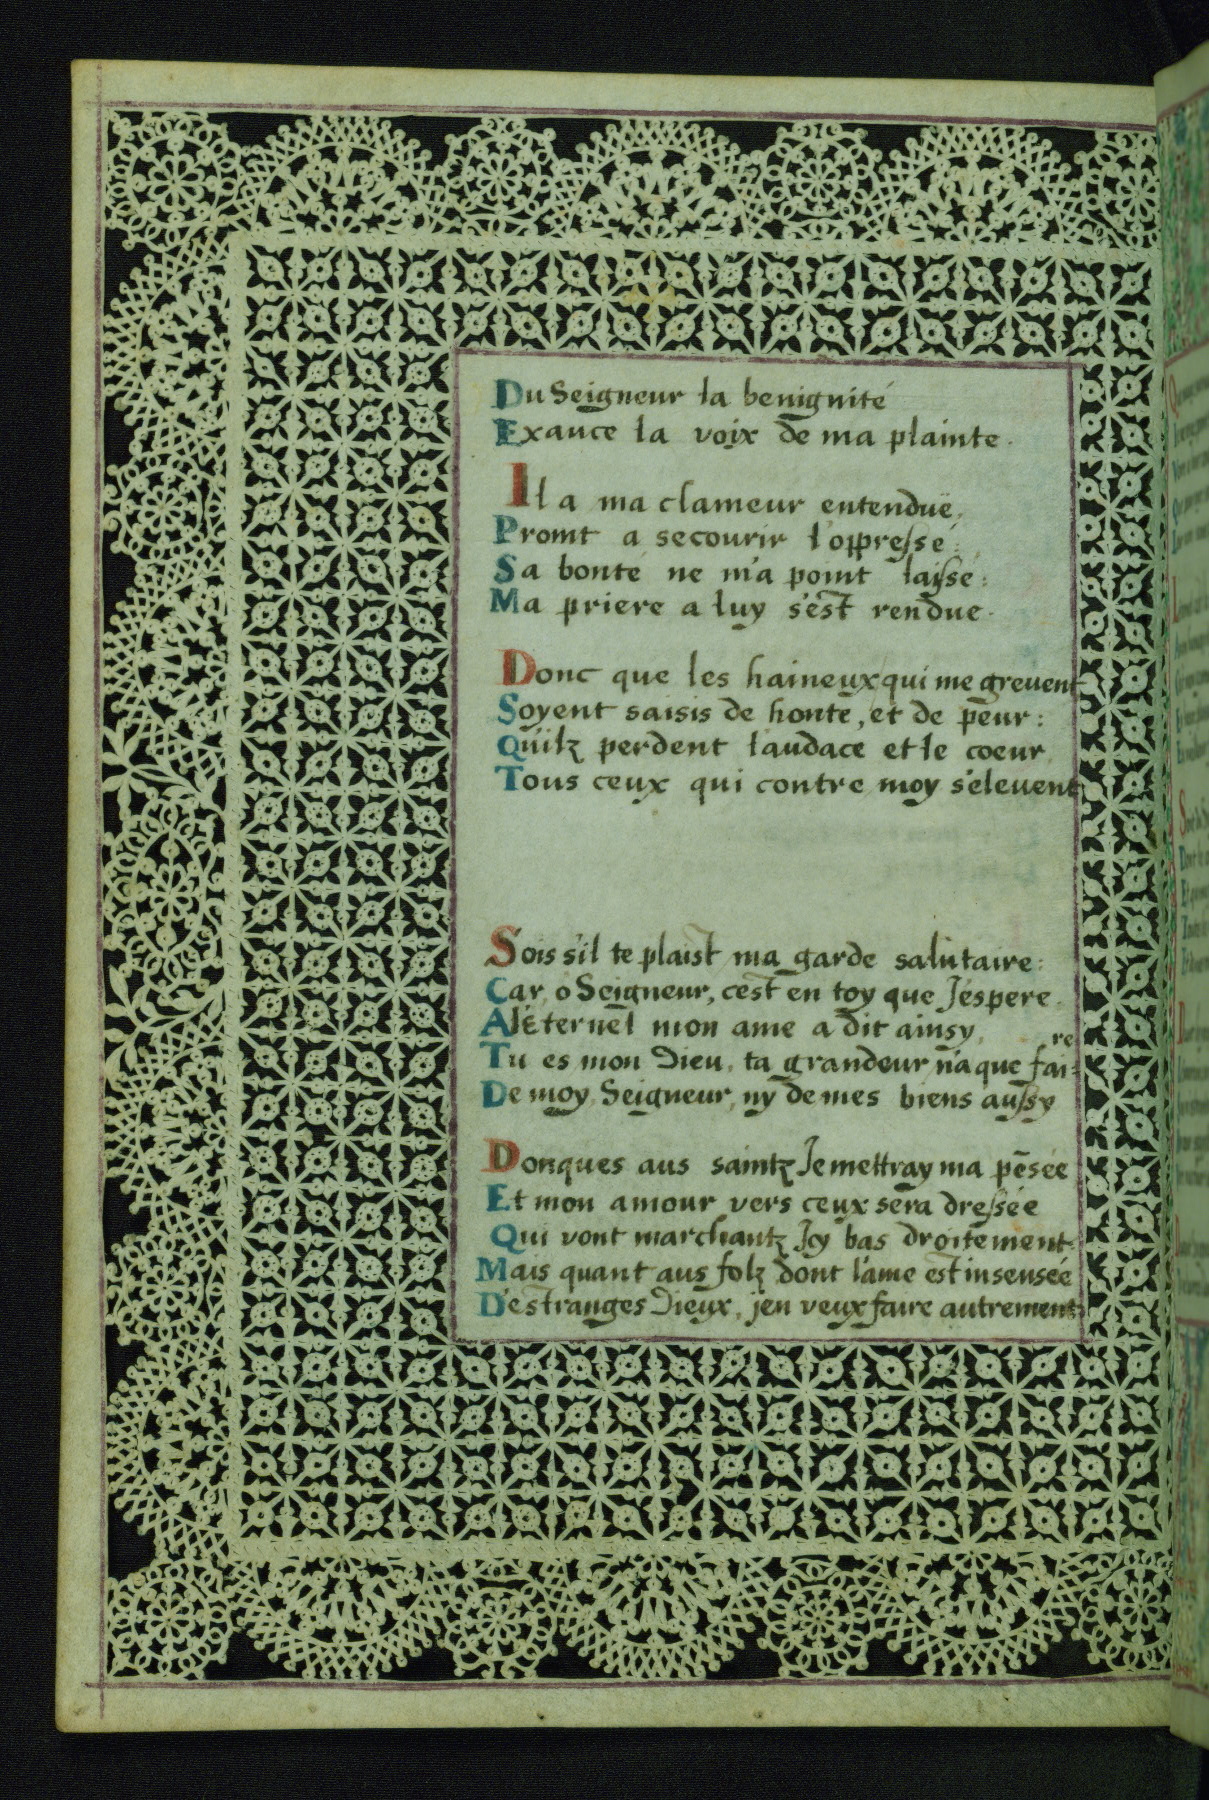 Du Seigneur la benignité
Exauce la voix de ma plainte.
Il a ma clameur entenduë,
Promt a secourir l'oppressé:
Sa bonté ne m'a point laissé:
Ma priere a luy s'est rendue.
Donc que les haineux qui me greuent
Soyent saisis de honte, et de peur:
Qu'ilz perdent laudace et le coeur
Tous ceux qui contre moy s'eleuent
Sois s'il te plaist ma garde salutaire:
Car, o Seigneur, c'est en toy que J'éspere.
Al'Eternel mon ame a dit ainsy,
Tu es mon Dieu, ta grandeur n'a que fai-re
De moy Seigneur, ny de mes biens aussy
Donques aus saintz Je mettray ma pēsée
Et mon amour vers ceux sera dressée
Qui vont marchantz Jcy bas droitement:
Mais quant aus folz dont l'ame est insensée
D'estranges Dieux, j'en veux faire autrement: